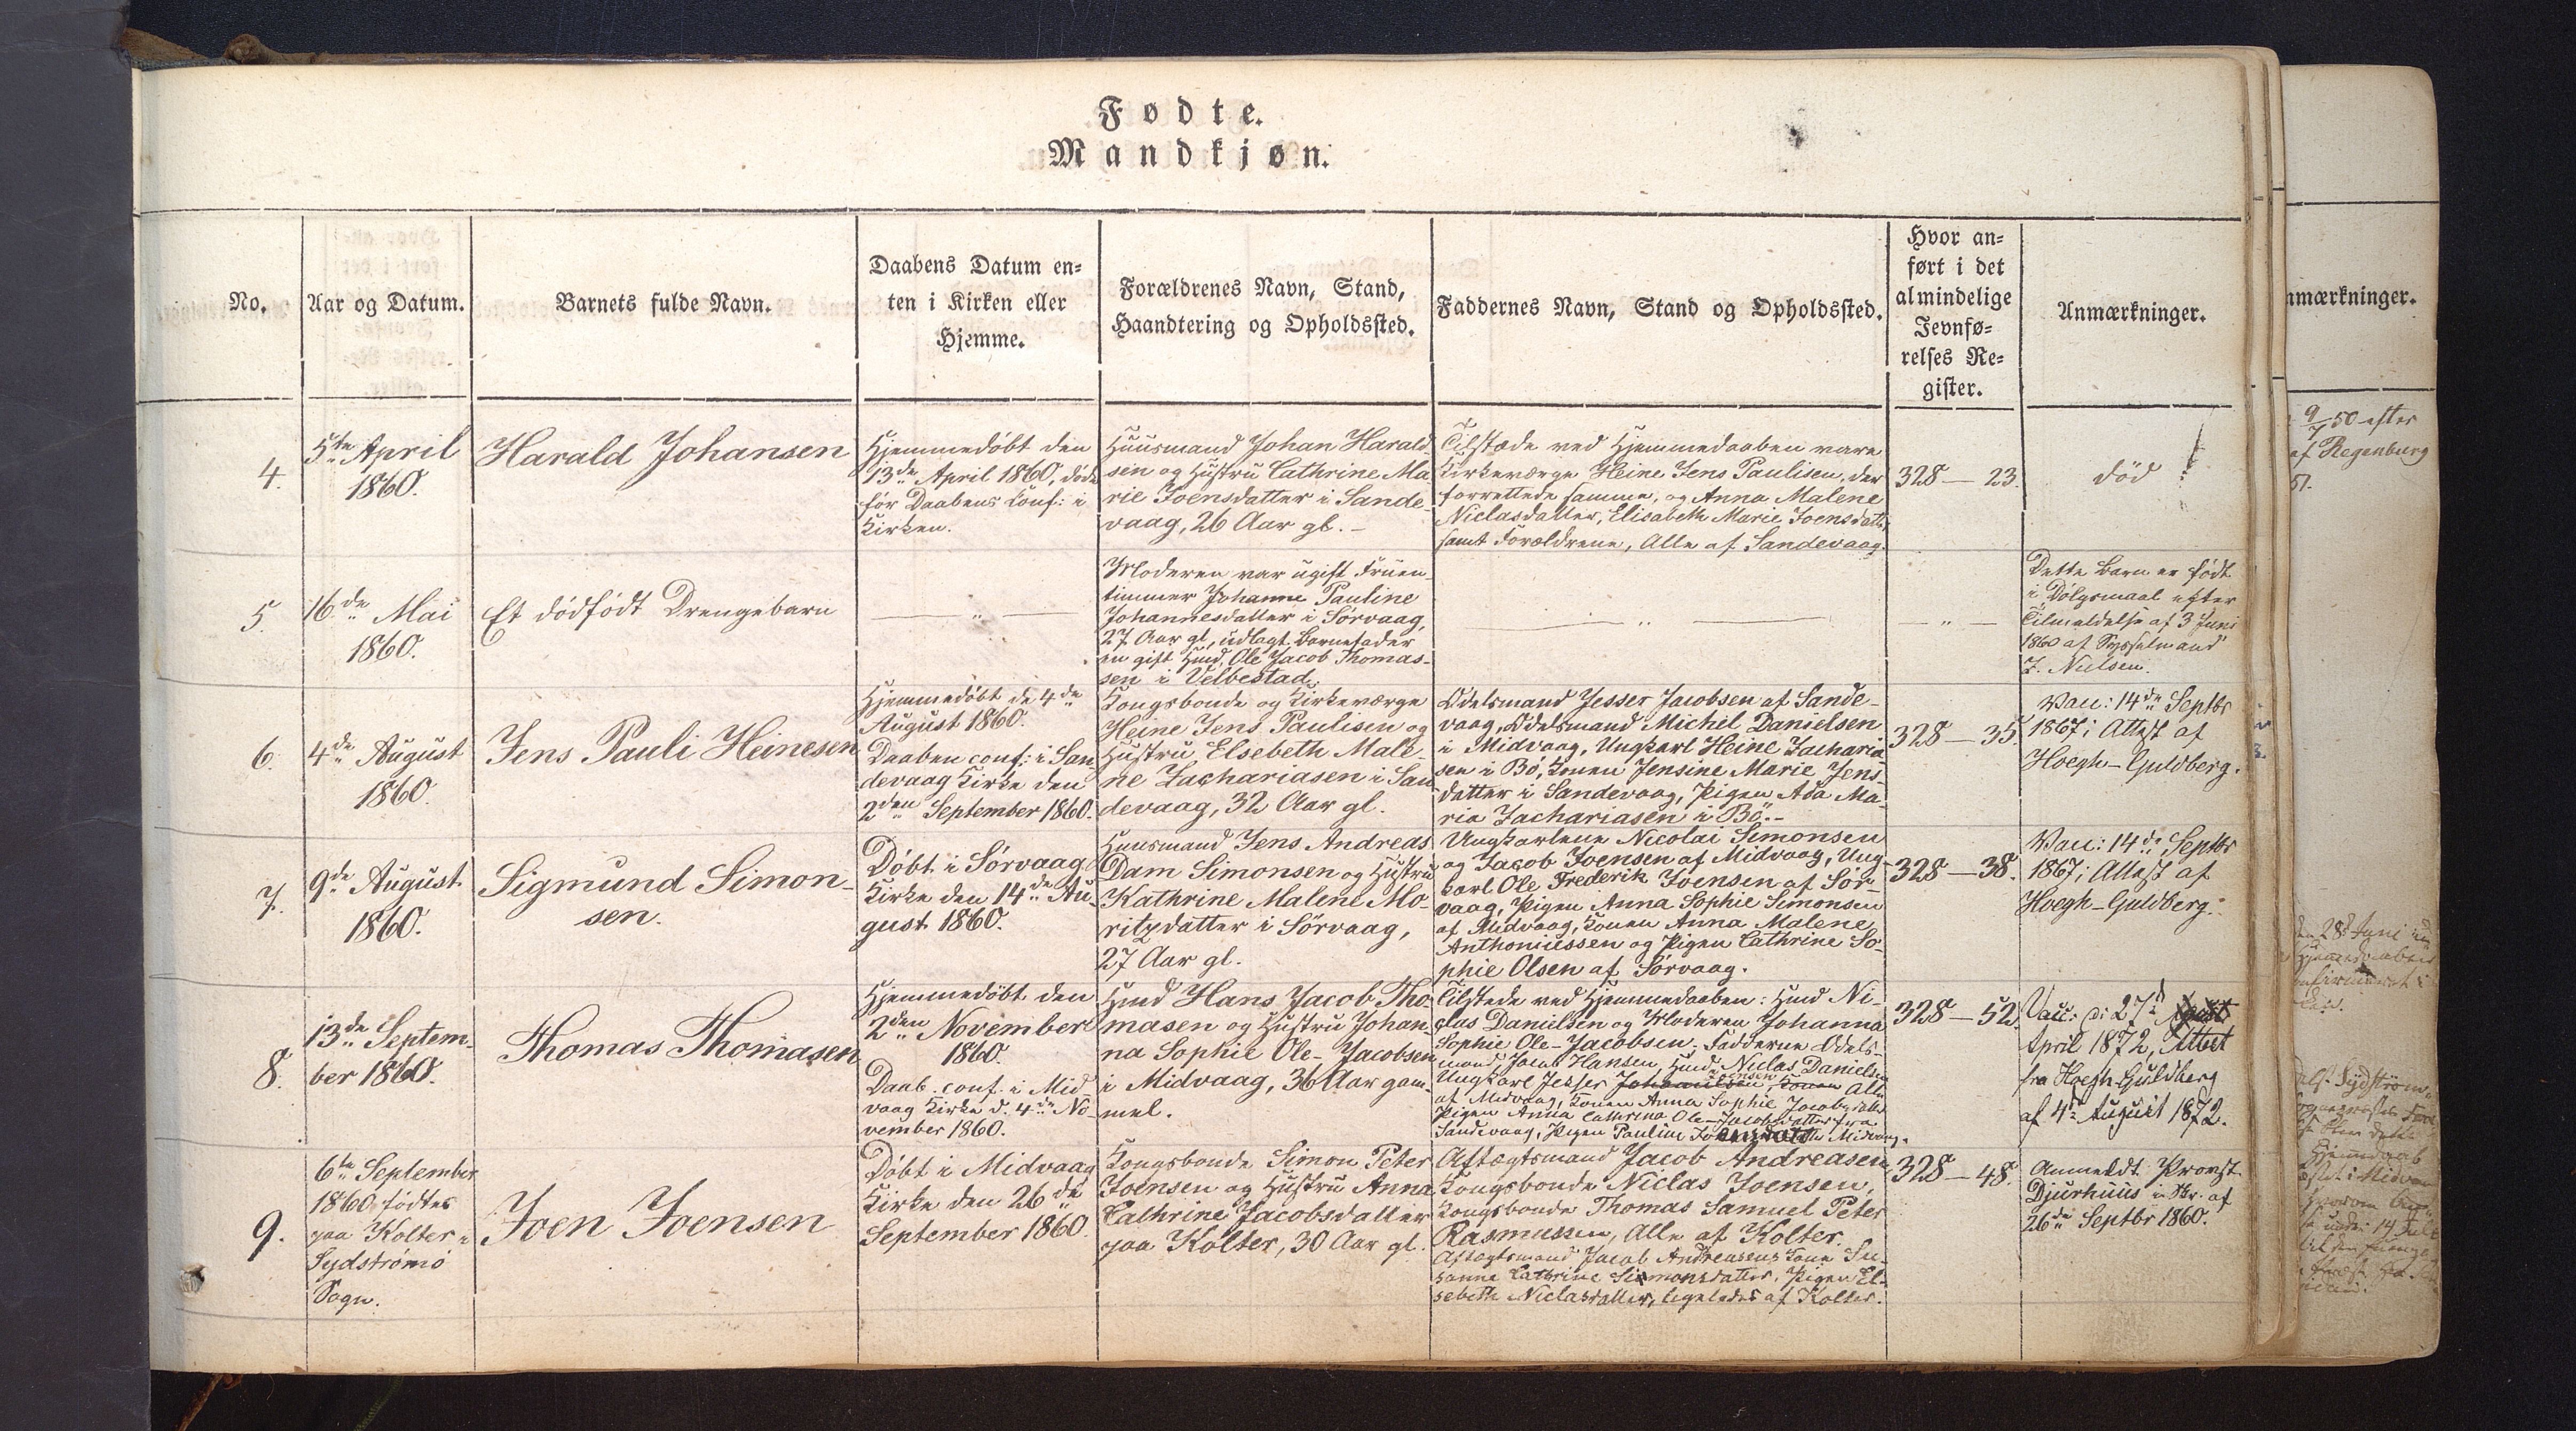 Fødte.
Mandkjøn.
No.
Aar og Datum.
Barnets fulde Navn.
Daabens Datum en-
ten i Kirken eller
Hjemme.
Forældrenes Navn, Stand,
Haandtering og Opholdssted.
Faddernes Navn, Stand og Opholdssted.
Hvor an-
ført i det
almindelige
Jevnfø-
relses Re-
gister.
Anmærkninger.
4.
5te April
1860.
Harald Johansen
Hjemmedøbt den
13de April 1860, døde
før Daabens Conf: i
Kirken.
Huusmand Johan Harald
sen og Hustru Cathrine Ma
rie Joensdatter i Sande-
vaag, 26 Aar gl. -
Tilstæde ved Hjemmedaaben vare
Kirkeværge Heine Jens Paulisen, der
forrettede samme, og Anna Malene
Niclasdatter, Elisabeth Marie Joensdatt.
samt Forældrene, Alle af Sandevaag.
328 — 23.
død
5.
16de Mai
1860.
Et dødfødt Drengebarn
— " —
Moderen var ugift Fruen-
timmer Johanne Pauline
Johannesdatter i Sørvaag,
27 Aar gl, udlagt Barnefader
en gift Hmd. Ole Jacob Thomas-
sen i Velbestad.
— " —
— " —
Dette Barn er født
i Dølgsmaal efter
Tilmeldelse af 3 Juni
1860 af Sysselmand
J. Nielsen.
6.
4de August
1860.
Jens Pauli Heinesen
Hjemmedøbt de 4de
August 1860.
Daaben conf: i San
devaag Kirke den
2den September 1860.
Kongsbonde og Kirkeværge
Heine Jens Paulisen og
Hustru Elsebeth Male-
ne Zachariasen i San
devaag, 32 Aar gl.
Odelsmand Jesser Jacobsen af Sande-
vaag, Odelsmand Michel Danielsen
i Midvaag, Ungkarl Heine Zacharia
sen i Bø, Konen Jensine Marie Jens-
datter i Sandevaag, Pigen Ada Ma-
ria Zachariasen i Bø. -
328 — 35.
Vacc: 14de Septbr
1867; Attest af
Hoegh-Guldberg.
7.
9de August
1860.
Sigmund Simon-
sen.
Døbt i Sørvaag
Kirke den 14de Au-
gust 1860.
Huusmand Jens Andreas
Dam Simonsen og Hustru
Kathrine Malene Mo-
ritzdatter i Sørvaag,
27 Aar gl.
Ungkarlene Nicolai Simonsen
og Jacob Joensen af Midvaag, Ung-
karl Ole Frederik Joensen af Sør-
vaag, Pigen Anna Sophie Simonsen
af Midvaag, Konen Anna Malene
Anthoniussen og Pigen Cathrine So-
phie Olsen af Sørvaag.
328 — 38.
Vacc: 14de Septbr
1867; Attest af
Hoegh-Guldberg.
8.
13de Septem-
ber 1860.
Thomas Thomasen
Hjemmedøbt den
2den November
1860.
Daab. conf. i Mid
vaag Kirke d. 4de No-
vember 1860.
Hmd Hans Jacob Tho-
masen og Hustru Johan
na Sophie Ole-Jacobsen
i Midvaag, 36 Aar gam-
mel.
Tilstede ved Hjemmedaaben: Hmd Ni-
clas Danielsen og Moderen Johanna
Sophie Ole-Jacobsen. Fadderne Odels-
mand, Jacob Hansen, Hmd. Niclas Danielsen
Ungkarl Jesser Joensen, Alle
af Midvaag, Konen Anna Sophie Jacobsdatter
Pigen Anna Cathrina Ole-Jacobsdatter fra
Sandevaag, Pigen Pauline Midvaag.
328 — 52.
Vacc: 27d
April 1872, Attest
fra Hoegh-Guldberg
af 4de August 1872.
9.
6te September
1860 fødtes
paa Kolter i
Sydstrømø
Sogn.
Joen Joensen
Døbt i Midvaag
Kirke den 26de
September 1860.
Kongsbonde Simon Peter
Joensen og Hustru Anna
Cathrine Jacobsdatter
paa Kolter, 30 Aar gl.
Aftægtsmand Jacob Andreasen,
Kongsbonde Niclas Joensen,
Kongsbonde Thomas Samuel Peter
Rasmussen, Alle af Kolter.
Aftægtsmand Jacob Andreasens Kone Su-
sanne Cathrine Simonsdatter, Pigen El-
sebeth Niclasdatter, ligeledes af Kolter.
328 — 48.
Anmeldt Provst
Djurhuus i Skr. af
26de Septbr 1860.
nmærkninger.
9/7 50 efter
af Regenburg
51.